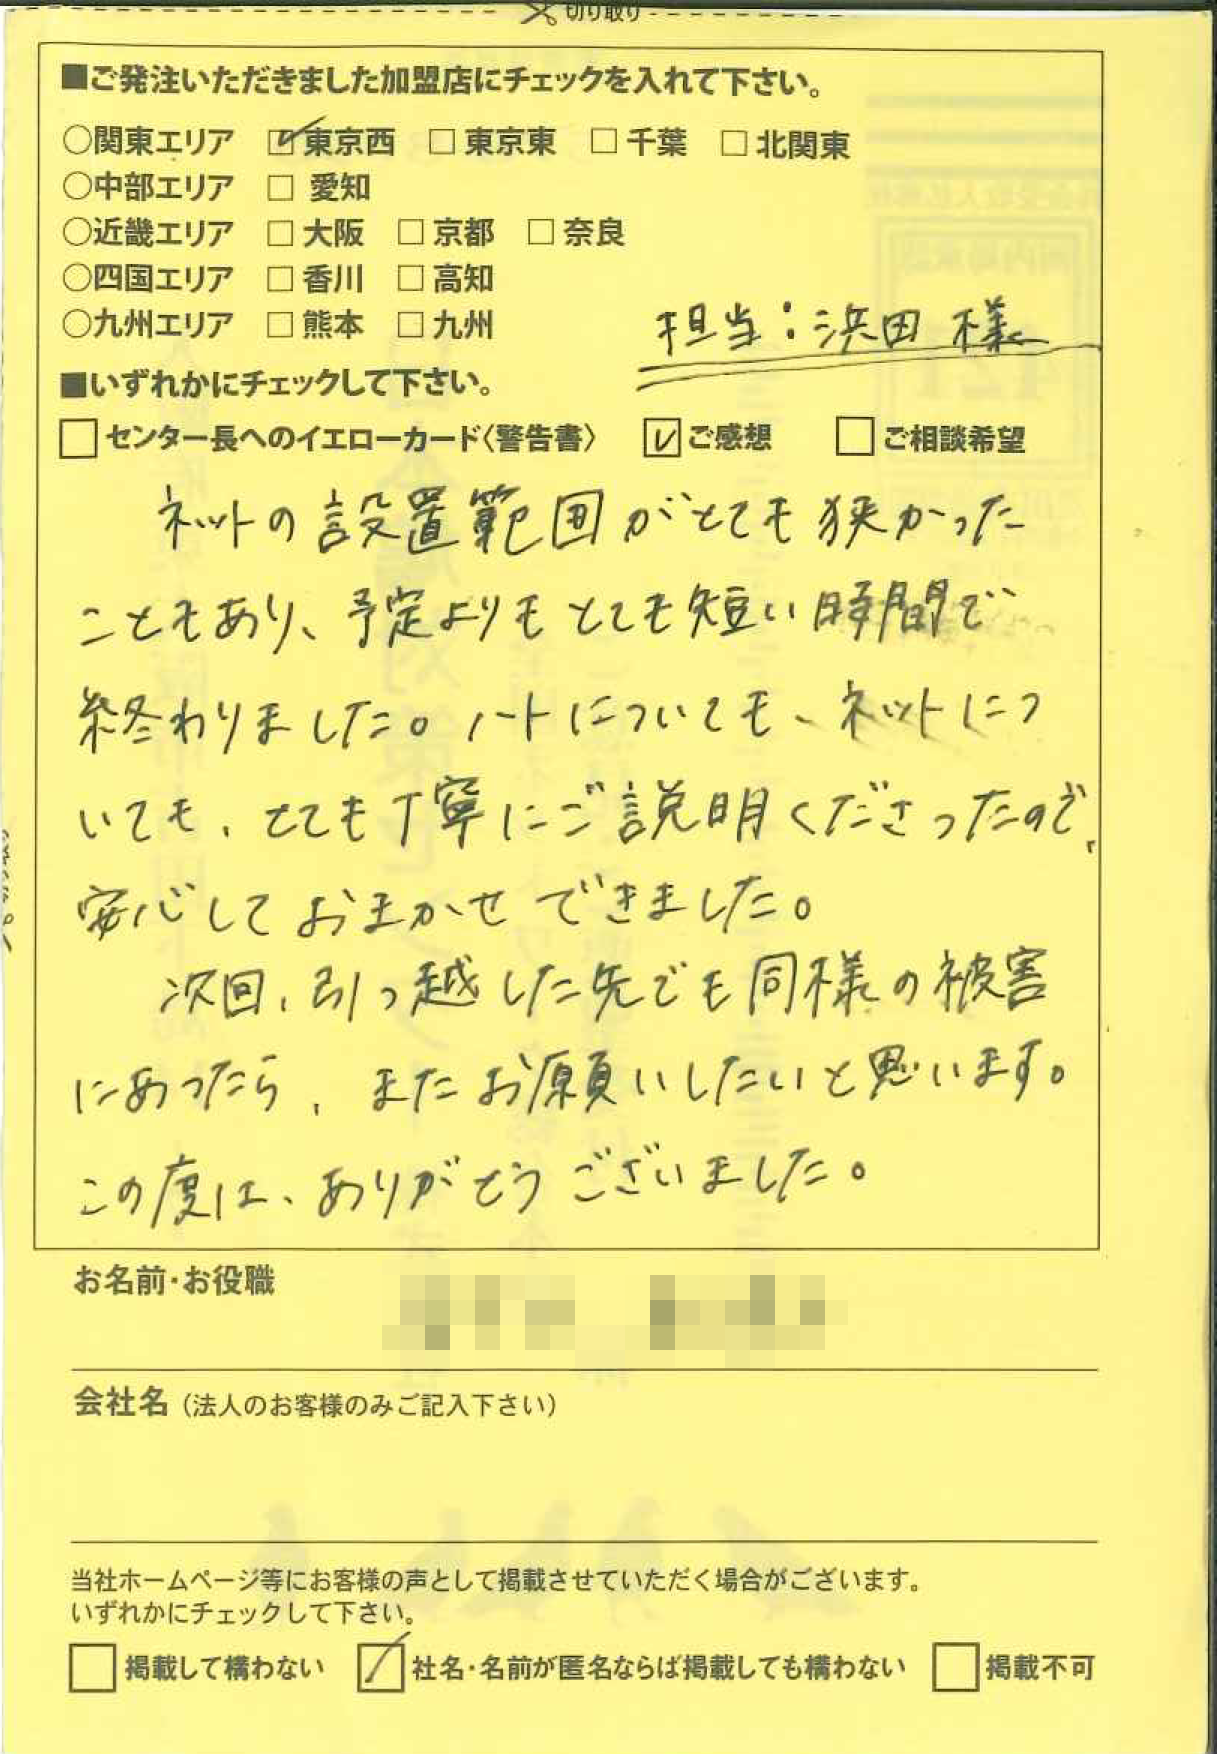 切り取り
■ご発注いただきました加盟店にチェックを入れて下さい。
○関東エリア ☑東京西 □東京東 □千葉 □北関東
○中部エリア □愛知
○近畿エリア □大阪 □京都 □奈良
○四国エリア □香川 □高知
○九州エリア □熊本 □九州
担当：浜田様
■いずれかにチェックして下さい。
□センター長へのイエローカード〈警告書〉 ☑ご感想 □ご相談希望
ネットの設置範囲がとても狭かった
こともあり、予定よりもとても短い時間で
終わりました。ハトについても、ネットにつ
いても、とても丁寧にご説明くださったので、
安心しておまかせできました。
次回、引っ越した先でも同様の被害
にあったら、またお願いしたいと思います。
この度は、ありがとうございました。
お名前・お役職
会社名（法人のお客様のみご記入下さい）
当社ホームページ等にお客様の声として掲載させていただく場合がございます。
いずれかにチェックして下さい。
□掲載して構わない ☑社名・名前が匿名ならば掲載しても構わない □掲載不可